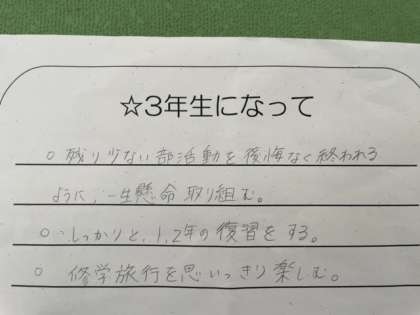 ☆3年生になって
○ 残り少ない部活動を後悔なく終われる
ように、一生懸命取り組む。
○ しっかりと、1,2年の復習をする。
○ 修学旅行を思いっきり楽しむ。